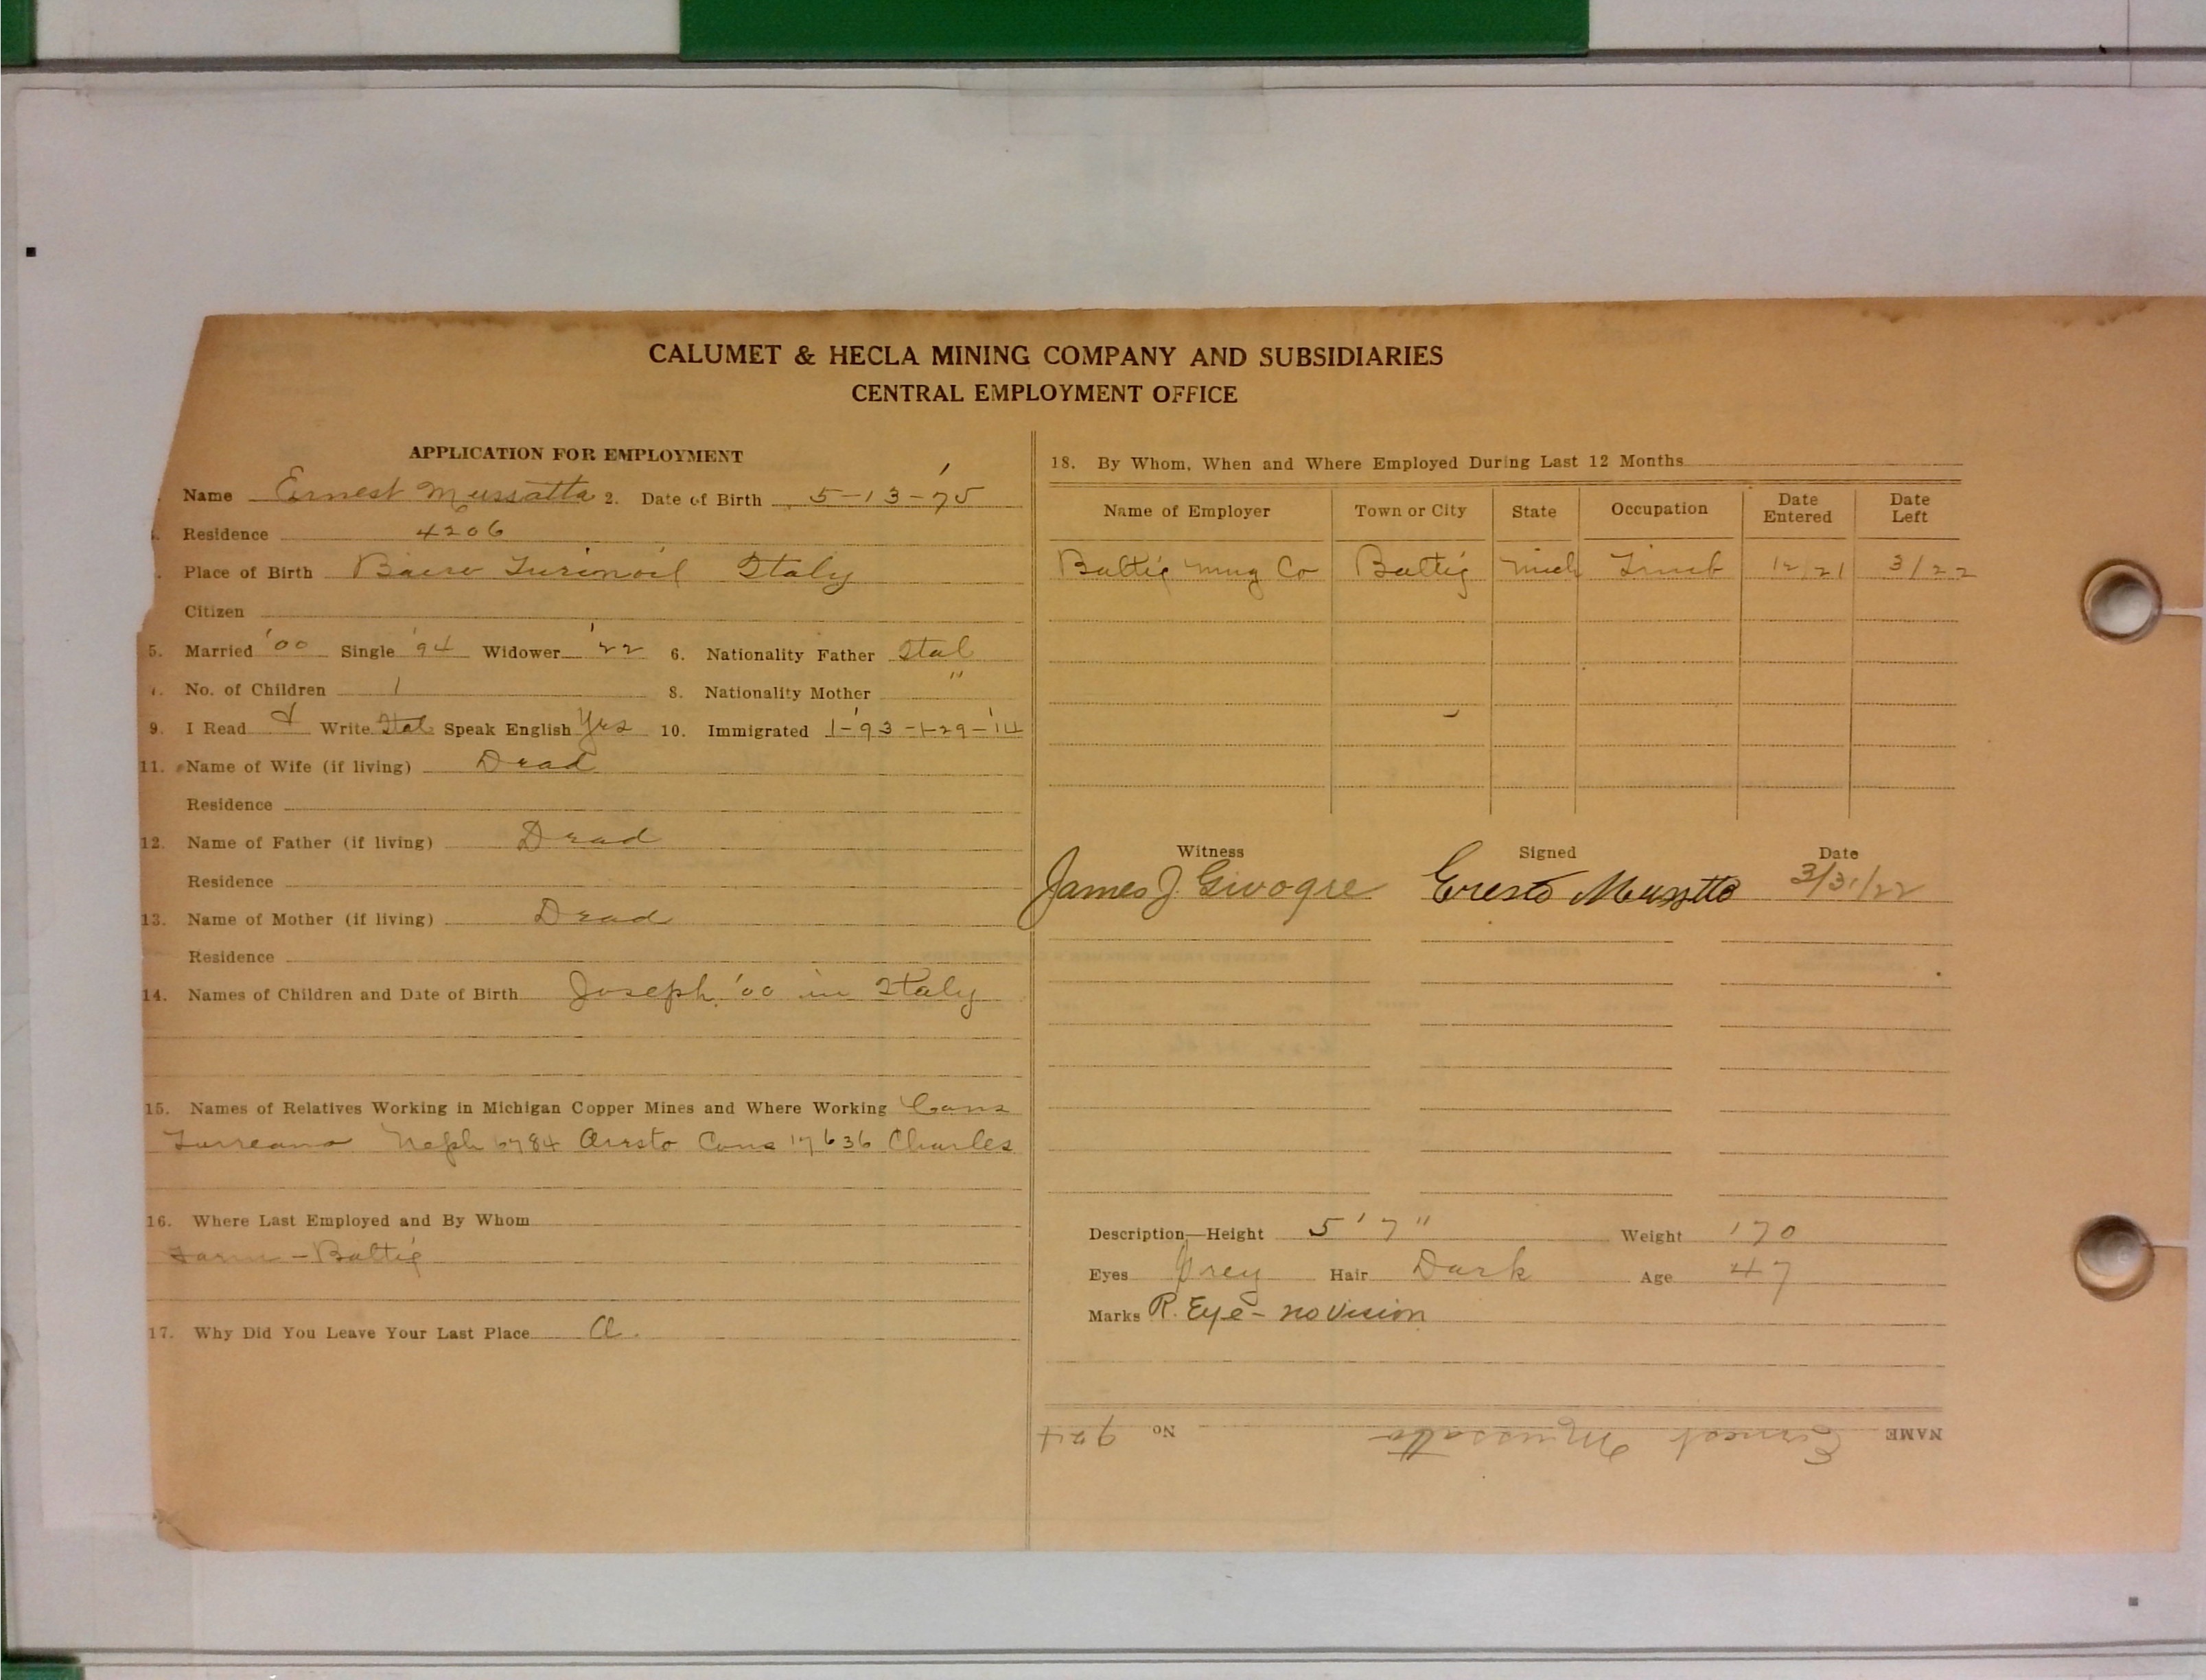 CALUMET & HECLA MINING COMPANY AND SUBSIDIARIES
CENTRAL EMPLOYMENT OFFICE
APPLICATION FOR EMPLOYMENT
Name Ernest Mussatto 2. Date of Birth 5-13-'75
Residence 4206
Place of Birth Italy
Citizen
5. Married '00 Single '94 Widower '22 6. Nationality Father Ital
7. No. of Children 1 8. Nationality Mother "
9. I Read & Write Ital Speak English Yes 10. Immigrated 1-'93-1-29-'14
11. Name of Wife (if living) Dead
Residence
12. Name of Father (if living) Dead
Residence
13. Name of Mother (if living) Dead
Residence
14. Names of Children and Date of Birth Joseph '00 in Italy
15. Names of Relatives Working in Michigan Copper Mines and Where Working Cons
Neph 6784 Cons 17636 Charles
16. Where Last Employed and By Whom
Farm - Baltic
17. Why Did You Leave Your Last Place a.
18. By Whom, When and Where Employed During Last 12 Months
Name of Employer Town or City State Occupation Date Entered Date Left
Baltic Mng Co Baltic Mich 12/21 3/22
Witness Signed Date
James J. Mussatto 3/31/22
Description—Height 5'7" Weight 170
Eyes Grey Hair Dark Age 47
Marks R. Eye - no vision
NAME Ernest Mussatto No 924